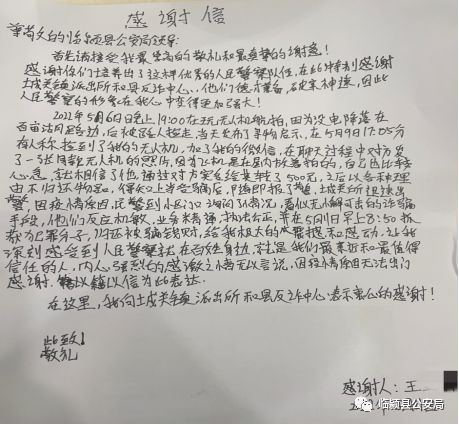 感谢信
尊敬的临颍县公安局领导：
首先请接受我最崇高的敬礼和最真挚的谢意！
感谢你们培养出了这样优秀的人民警察队伍，在此特别感谢
城关镇派出所和县反诈中心，他们德才兼备，破案神速，因此
人民警察的形象在我心中变得更加高大！
2022年5月6日晚上19:00在玩无人机航拍，因为没电降落在
百亩沽月园路边，后被路人捡走，当天发布了寻物启示，在5月9日17:05分
有人称捡到了我的无人机，加了我的微信，在聊天过程中对方发
了一张同款无人机的照片，因其飞机是在屋内拍着拍的，自己也比较
心急，就相信了他，通过对方索要给其转了500元，之后以各种理
由不归还物品，使我意识上当受骗后，随即报了警，城关派出所迅速出
警，因疫情原因，民警到小区门口询问详情况，看似无懈可击的诈骗
手段，他们反应机敏，业务精通，找出公正，并在5月11日早上8:50抓
获了犯罪分子，归还被骗钱财，给我极大的震撼和感动，让我
深刻感受到人民警察就在百姓身边，就是我们最亲近和最值得
信任的人，内心强烈的感激之情无以言说，因疫情原因无法出门
感谢，谨以信为此表达。
在这里，我向城关镇派出所和县反诈中心表示衷心的感谢！
此致！
敬礼
感谢人：王
临颍县公安局